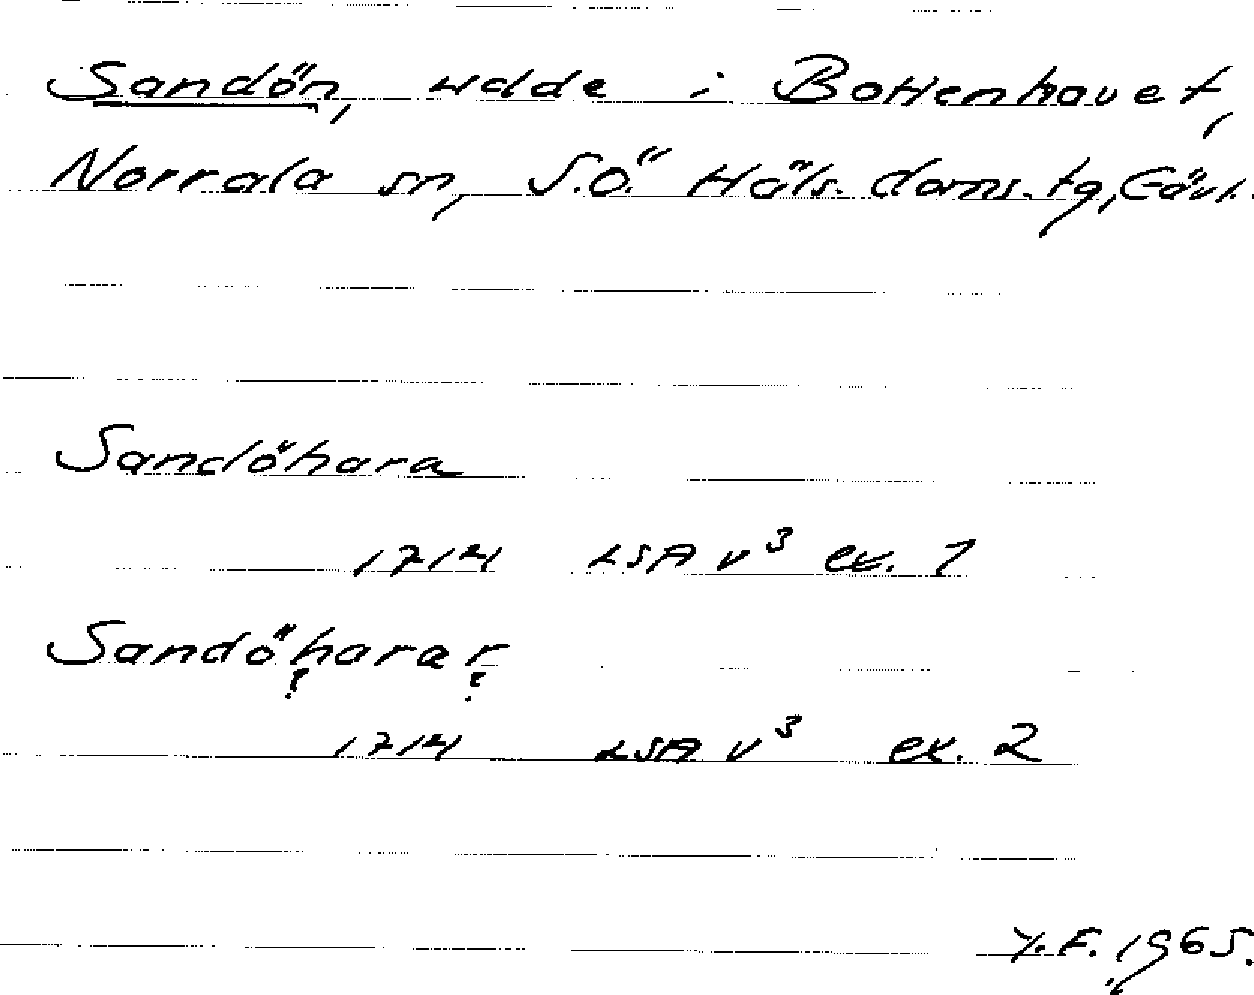 Sandön, udde i Bottenhavet,
Norrala sn, S.Ö. Häls. doms. tg, Gävl.
Sandöhara
1714 LSA v³ ex. 1
Sandöharar
? ?
1714 LSA v³ ex. 2
Y.F. 1965.